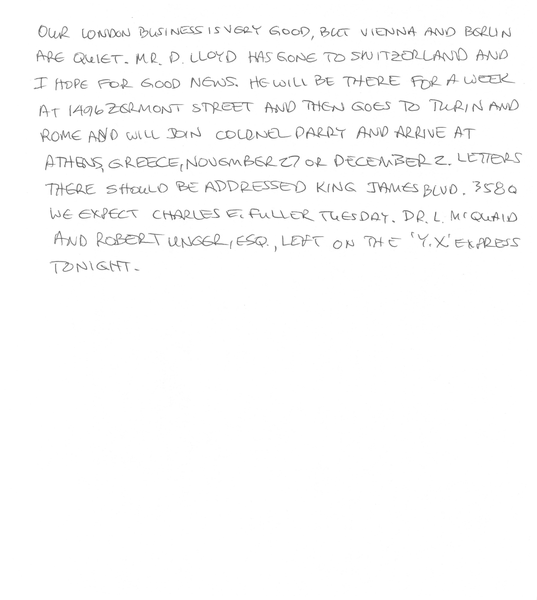 OUR LONDON BUSINESS IS VERY GOOD, BUT VIENNA AND BERLIN
ARE QUIET. MR. D. LLOYD HAS GONE TO SWITZERLAND AND
I HOPE FOR GOOD NEWS. HE WILL BE THERE FOR A WEEK
AT 1496 ZERMONT STREET AND THEN GOES TO TURIN AND
ROME AND WILL JOIN COLONEL PARRY AND ARRIVE AT
ATHENS, GREECE, NOVEMBER 27 OR DECEMBER 2. LETTERS
THERE SHOULD BE ADDRESSED KING JAMES BLVD. 3580
WE EXPECT CHARLES E. FULLER TUESDAY. DR. L. MCQUAID
AND ROBERT UNGER, ESQ., LEFT ON THE 'Y.X.' EXPRESS
TONIGHT.